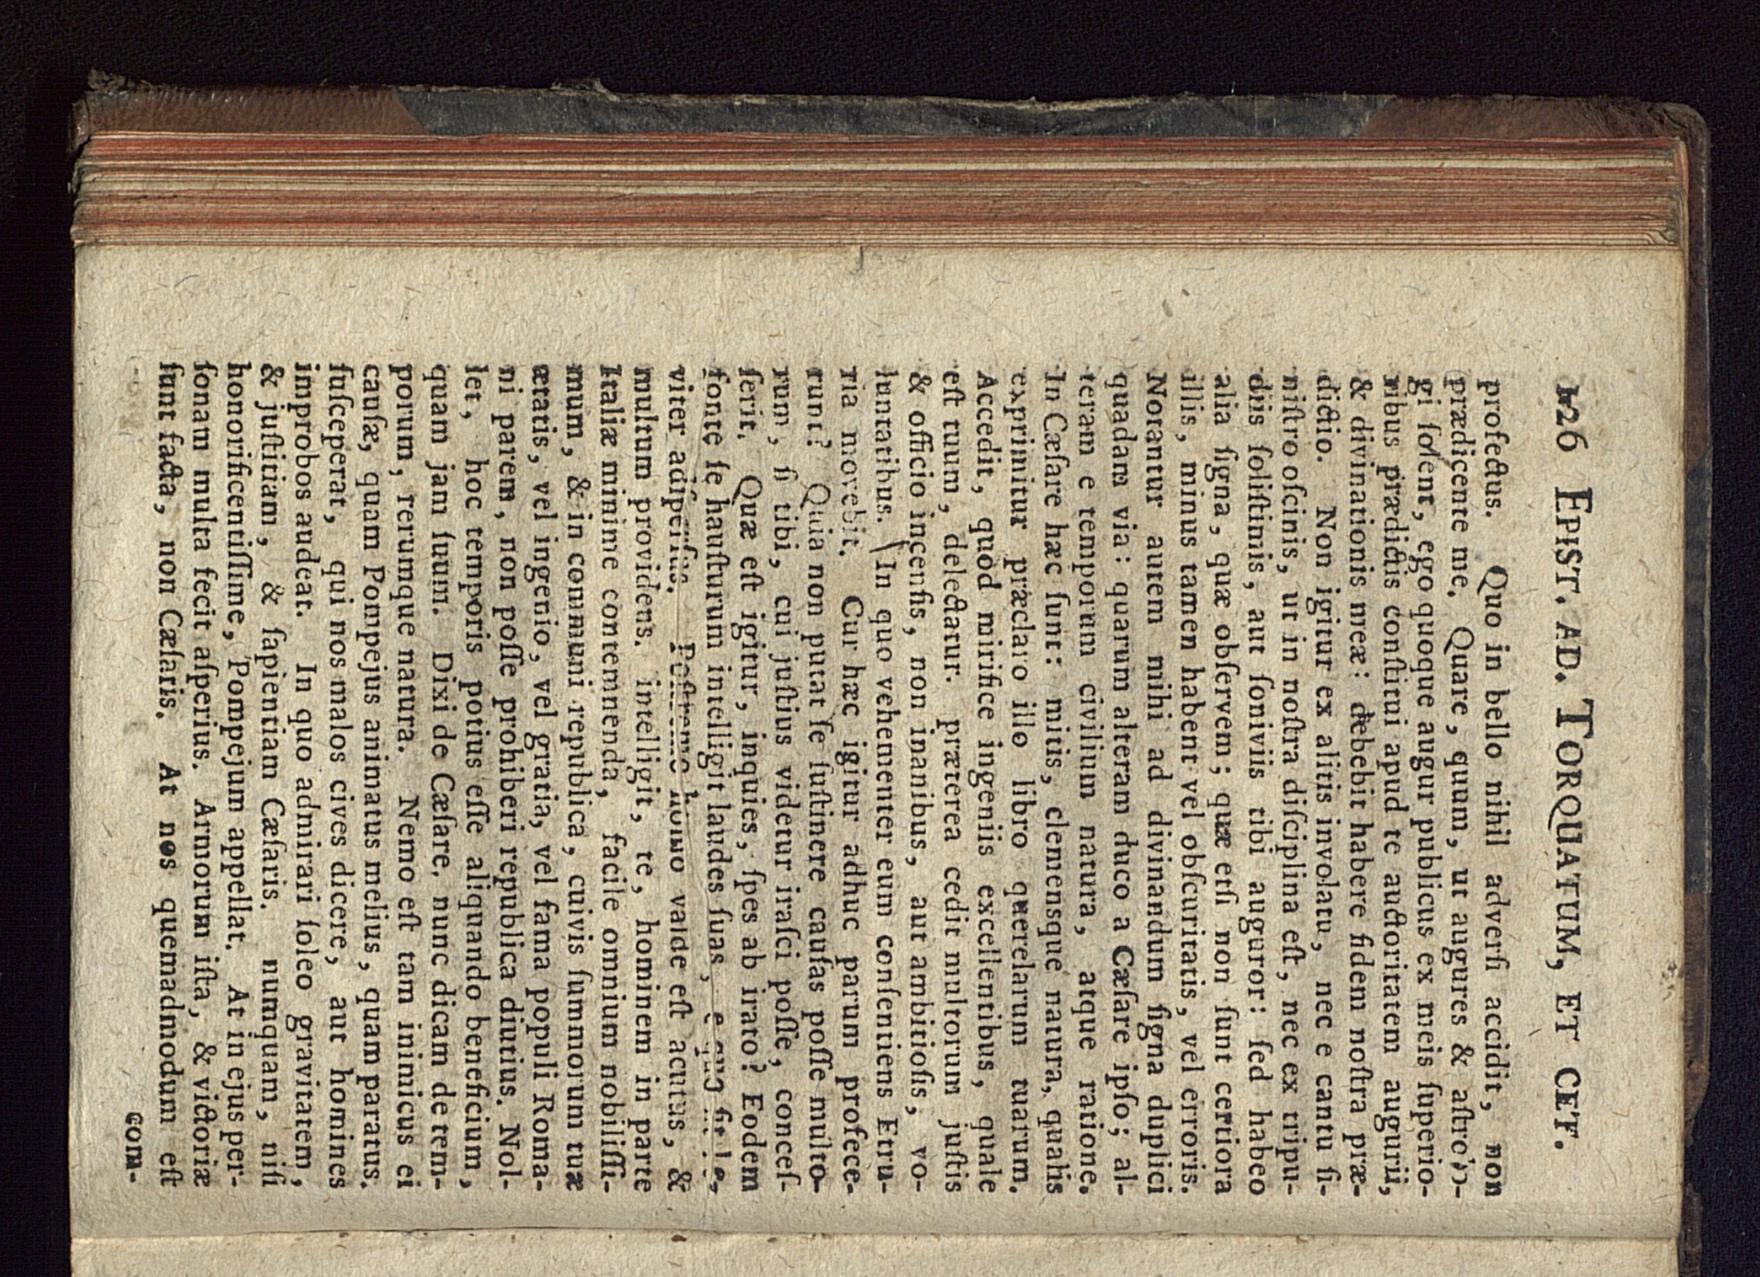 126 EPIST. AD. TORQUATUM, ET CET.
profectus. Quo in bello nihil adverſi accidit, non
prædicente me. Quare, quum, ut augures & aſtrolo-
gi ſolent, ego quoque augur publicus ex meis ſuperio-
ribus prædictis conſtitui apud te auctoritatem augurii,
& divinationis meæ: debebit habere fidem noſtra præ-
dictio. Non igitur ex alitis involatu, nec e cantu ſi-
niſtro oſcinis, ut in noſtra diſciplina eſt, nec ex tripu-
diis ſoliſtimis, aut ſoniviis tibi auguror: ſed habeo
alia ſigna, quæ obſervem; quæ etſi non ſunt certiora
illis, minus tamen habent vel obſcuritatis, vel erroris.
Notantur autem mihi ad divinandum ſigna duplici
quadam via: quarum alteram duco a Cæſare ipſo; al-
teram e temporum civilium natura, atque ratione.
In Cæſare hæc ſunt: mitis, clemensque natura, qualis
exprimitur præclaro illo libro querelarum tuarum.
Accedit, quòd mirifice ingeniis excellentibus, quale
eſt tuum, delectatur. præterea cedit multorum juſtis
& officio incenſis, non inanibus, aut ambitioſis, vo-
luntatibus. In quo vehementer eum conſentiens Etru-
ria movebit. Cur hæc igitur adhuc parum profece-
runt? Quia non putat ſe ſuſtinere cauſas poſſe multo-
rum, ſi tibi, cui juſtius videtur iraſci poſſe, conceſ-
ſerit. Quæ eſt igitur, inquies, ſpes ab irato? Eodem
fonte ſe hauſturum intelligit laudes ſuas, e quo ſit le-
viter adſperſus. Poſtremo homo valde eſt acutus, &
multum providens. intelligit, te, hominem in parte
Italiæ minime contemnenda, facile omnium nobiliſſi-
mum, & in communi republica, cuivis ſummorum tuæ
ætatis, vel ingenio, vel gratia, vel fama populi Roma-
ni parem, non poſſe prohiberi republica diutius. Nol-
let, hoc temporis potius eſſe aliquando beneficium,
quam jam ſuum. Dixi de Cæſare. nunc dicam de tem-
porum, rerumque natura. Nemo eſt tam inimicus ei
cauſæ, quam Pompejus animatus melius, quam paratus.
ſuſceperat, qui nos malos cives dicere, aut homines
improbos audeat. In quo admirari ſoleo gravitatem,
& juſtitiam, & ſapientiam Cæſaris. numquam, niſi
honorificentiſſime, Pompejum appellat. At in ejus per-
ſonam multa fecit aſperius. Armorum iſta, & victoriæ
ſunt facta, non Cæſaris. At nos quemadmodum eſt
com-